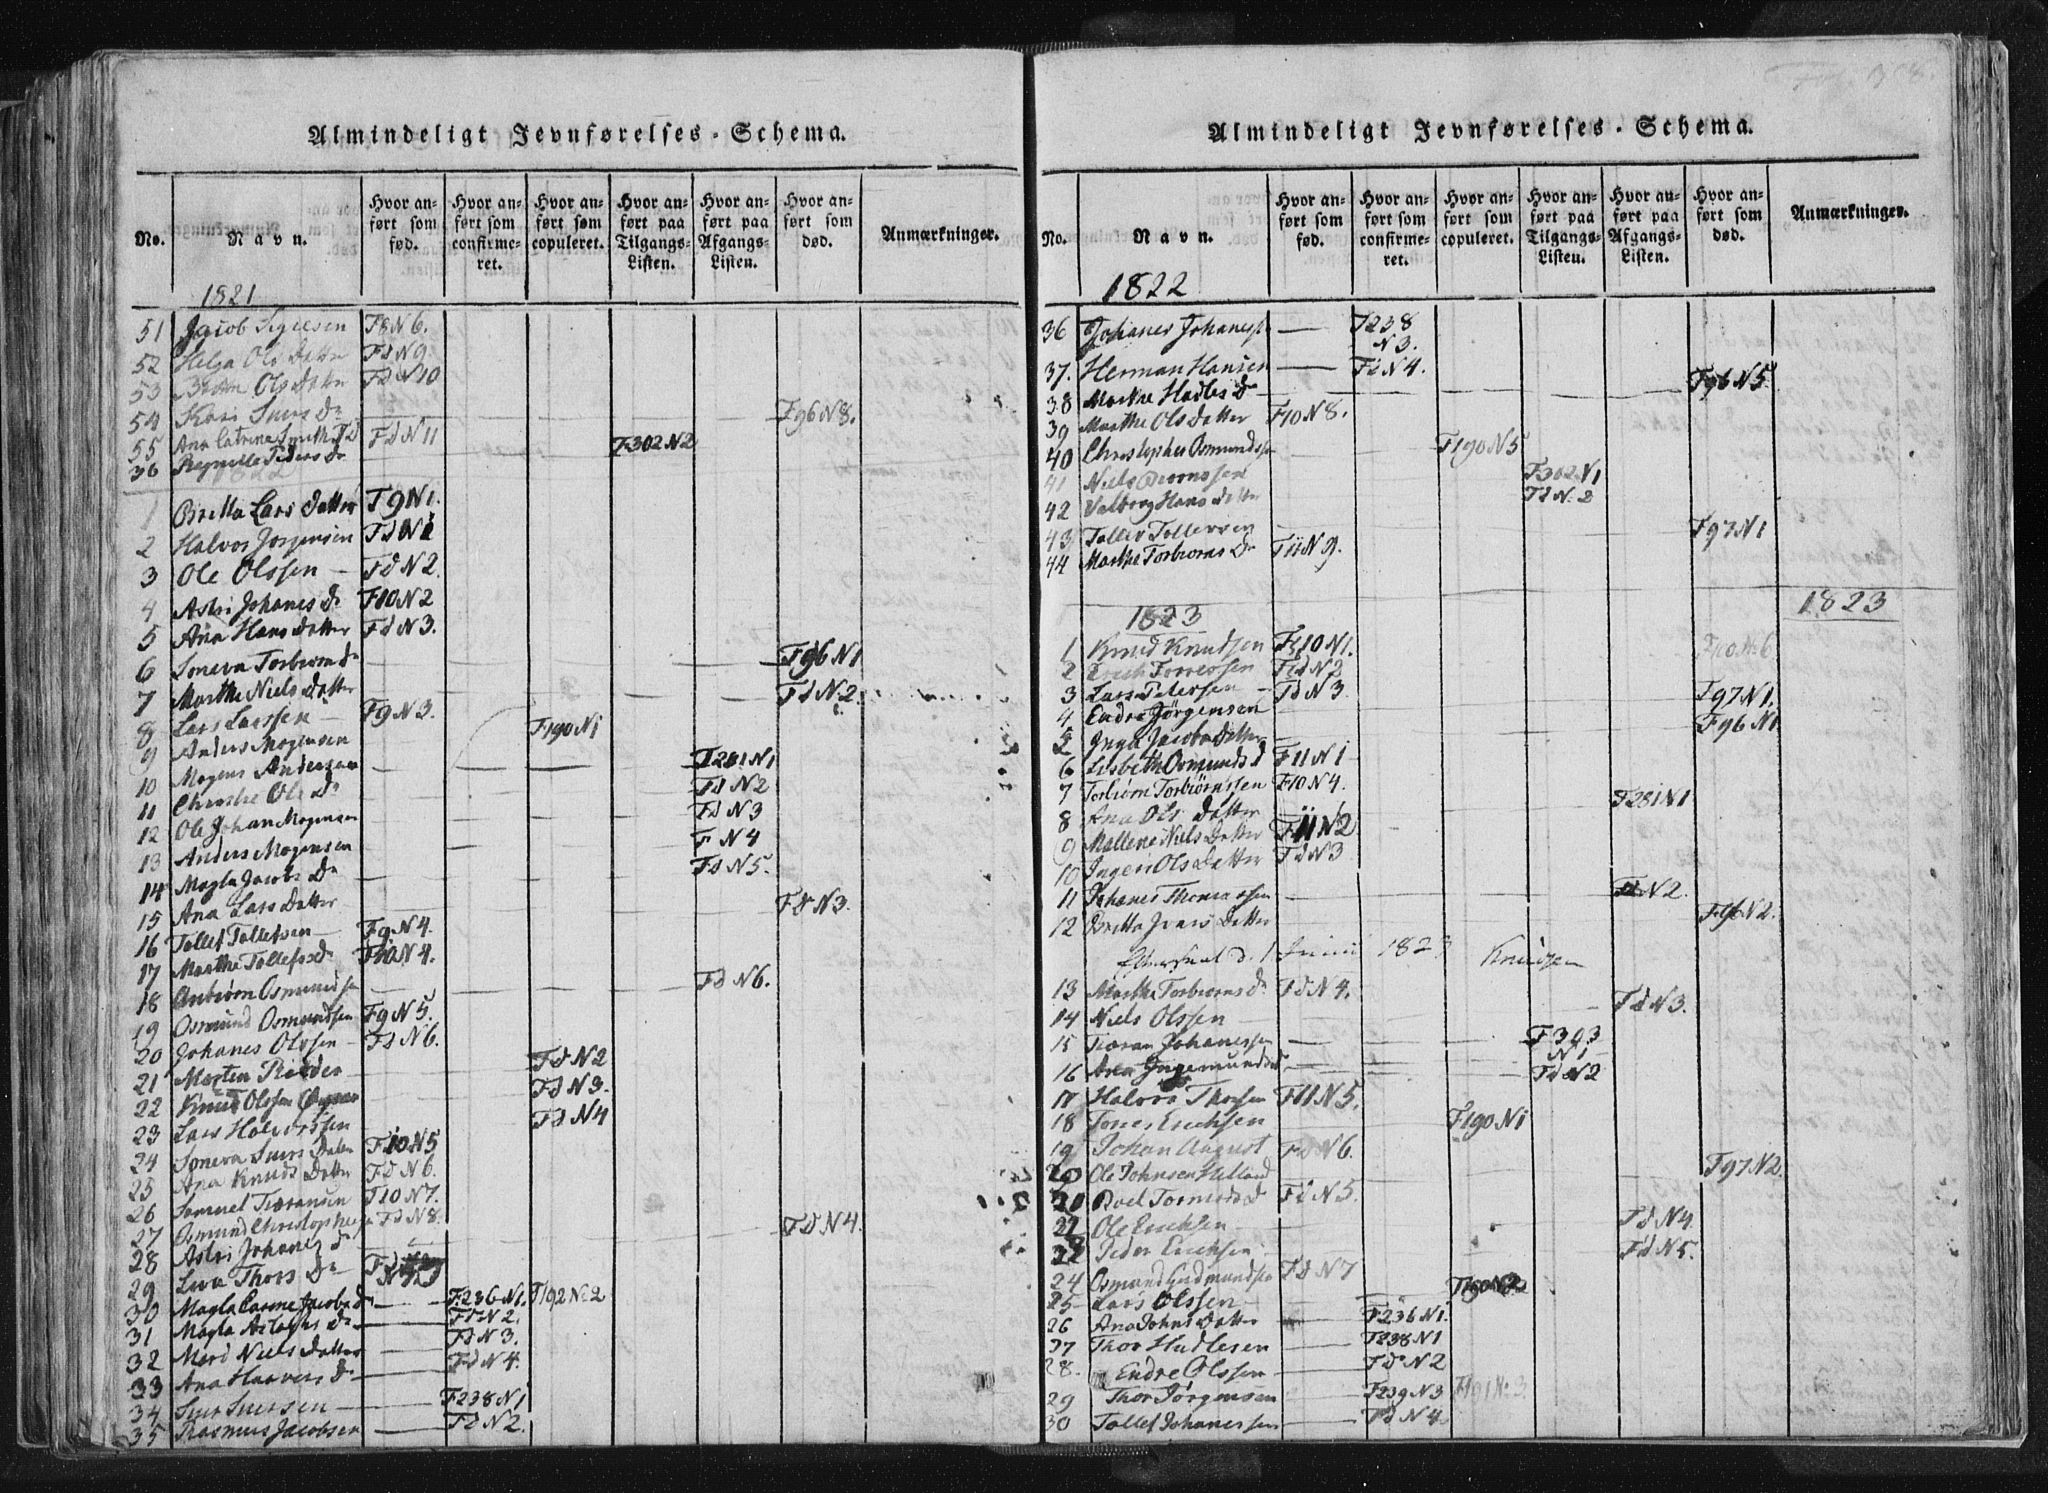 Almindeligt Jevnførelses-Schema.
No. Navn. Hvor anført som fød. Hvor anført som confirmeret. Hvor anført som copuleret. Hvor anført paa Tilgangs-Listen. Hvor anført paa Afgangs-Listen. Hvor anført som død. Anmærkninger.
1821
51 Jacob F8 N6.
52 Helga Ols Datter Fd N9
53 Ols Datter Fd N10
54 Kari Siurs Dr F96 N8.
55 Ana Catrina Smith Fd N11
56 Peders Dr F302 N2
1822
1 Britta Lars Datter F9 N1.
2 Halvor Jörgensen Fd N1
3 Ole Olssen — Fd N2.
4 Astri Johanes Dr F10 N2
5 Ana Hans Datter Fd N3.
6 Sineva Torbiörns Dr F96 N1
7 Marthe Niels Datter Fd N2.
8 Lars Larssen — F9 N3.
9 Anders Mogensen F190 N1
10 Mogens Andersen F281 N1
11 Christie Ols Dr Fd N2
12 Ole Johan Mogensen Fd N3
13 Anders Mogensen F N4
14 Magla Jacobs Dr Fd N5.
15 Ana Lars Datter Fd N3.
16 Tollef Tollefsen — F9 N4.
17 Marthe Tollefs Dr F10 N4.
18 Osmundsen Fd N6.
19 Osmund Osmundsen F9 N5.
20 Johanes Olssen — Fd N6.
21 Morten Fd N2
22 Knud Olssen Fd N3.
23 Lars Halvorssen Fd N4
24 Sineva Siurs Datter F10 N5
25 Ana Knuds Datter Fd N6.
26 Samuel F10 N7.
27 Osmund Christophersen Fd N8.
28 Astri Johanes Dr Fd N4.
29 Thors Dr Fd
30 Magla Jacobs Dr F236 N1. F192 No 2
31 Magla Dr Fd N2.
32 Niels Datter Fd N3.
33 Ana Haavers Dr Fd N4.
34 Siur Siursen — F238 N1
35 Rasmus Jacobsen Fd N2.
Almindeligt Jevnførelses-Schema.
No. Navn. Hvor anført som fød. Hvor anført som confirmeret. Hvor anført som copuleret. Hvor anført paa Tilgangs-Listen. Hvor anført paa Afgangs-Listen. Hvor anført som død. Anmærkninger.
1822
36 Johanes Johanes — F238
N3.
37. Herman Hansen — Fd N4.
38 Marthe Dr F96 N5
39 Marthe Ols Datter F10 N8.
40 Christopher Osmundsen F190 N5
41 Niels F302 N1
42 Valborg Hans Datter Fd N.2
43 Tollef Tollefsen F97 N1
44 Marthe Torbiörns Dr F11 N9.
1823
1823
1 Knud Knudsen F10 N1.
2 Erich Fd N2
3 Lars Petersen — Fd N3
4 Endre Jörgensen F97 N1.
5 Inga Jacobs Datter F96 N1
6 Lisbeth Osmunds d F11 N1
7 Torbiörn Torbiörnssen F10 N4.
8 Ana Ols Datter F281 N1
9 Mallene Niels Datter F11 N2
10 Inger Ols Datter Fd N3
11 Johanes Thomassen Fd N2.
12 Britta Ivars Datter F96 N2.
Efterseet d. 1 Junii 1823 Knudsen
13 Marthe Torbiörns Dr Fd N4.
14 Niels Olssen Fd N3.
15 Johanessen F303
N1
16 Ana Fd N2
17 Halvor F11 N5.
18 Jones Erichsen F190 N1
19 Johan August Fd N6.
20 Ole Johnsen Helland F97 N2.
21 Tormods d Fd N5.
22 Ole Erichsen Fd N4
Peder Erichsen Fd N5.
24 Osmund Gudmundsen Fd N7
25 Lars Olssen F190 N2
26 Ana Johns Datter F236 N1.
27 Thor Hudlesen F238 N1
28. Endre Olssen — Fd N2
29 Thor Jörgensen F239 N3 F191 No 3
30 Tollef Johanessen — Fd N4